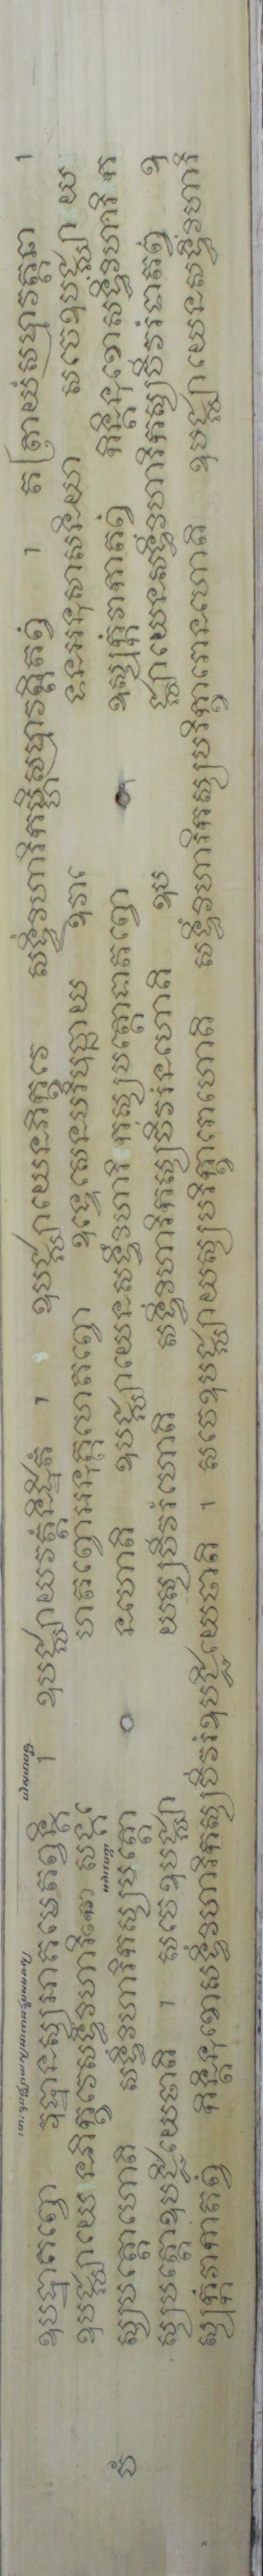 ឧបដ្ឋាតព្វោ វុដ្ឋានស្សអាគមេតព្វន្តិ ។ ឧបជ្ឈាយវត្តំនិដ្ឋិតំ ។ ឧបជ្ឈាយេនភិក្ខវេ សទ្ធិវិហារិកម្ហិសម្មាវត្តិតព្វំ ។ តត្រាយំសម្មាវត្តនា ។
ឧបជ្ឈាយេនភិក្ខវេសទ្ធិវិហារិកោ សង្គហេតព្វោអនុគ្គហេតព្វោ ឧទ្ទេសេនបរិបុច្ឆាយ ឱវាទេនអនុសាសនិយា សចេឧបជ្ឈាយ
ស្សបត្តោហោតិ សទ្ធិវិហារិកស្សបត្តោ នហោតិ ឧបជ្ឈាយេនសទ្ធិវិហារិកស្សបត្តោទាតព្វោ ឧស្សុក្កំវាកាតព្វំ កិន្តិនុខោសទ្ធិវិហារិក
ស្សបត្តោឧប្បជ្ជិយេថាតិ ។ សចេឧបជ្ឈាយស្សចីវរំហោតិ សទ្ធិវិហារិកស្សចីវរំនហោតិ ឧបជ្ឈាយេនសទ្ធិវិហារិកស្សចីវរំទាតព្វំ ឧ
ស្សុក្កំវាកាតព្វំ កិន្តិនុខោសទ្ធិវិហារិកស្សចីវរំឧប្បជ្ជិយេថាតិ ។ សចេឧបជ្ឈាយស្សបរិក្ខារោហោតិ សទ្ធិវិហារិកស្សបរិក្ខារោនហោតិ ឧបជ្ឈាយេនសទ្ធិវិហារិ